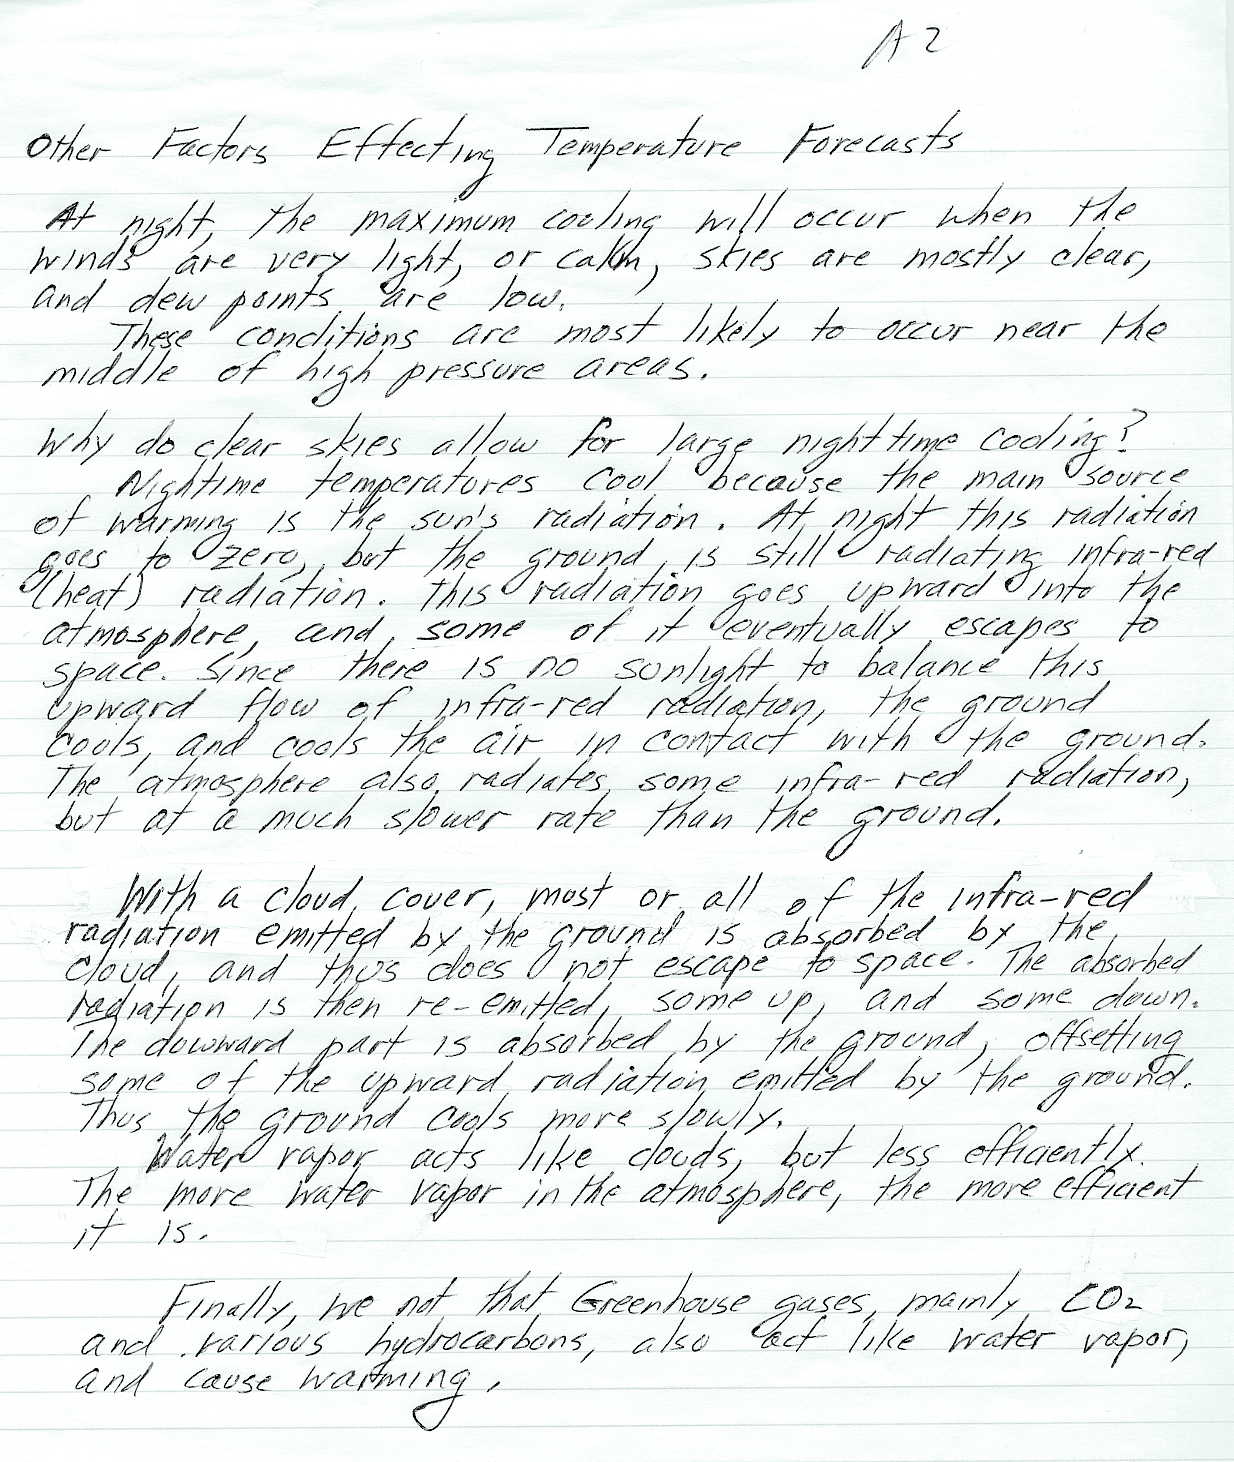 A2
Other Factors Effecting Temperature Forecasts
At night, the maximum cooling will occur when the
winds are very light, or calm, skies are mostly clear,
and dew points are low.
These conditions are most likely to occur near the
middle of high pressure areas.
Why do clear skies allow for large nighttime cooling?
Nightime temperatures cool because the main source
of warming is the sun's radiation. At night this radiation
goes to zero, but the ground is still radiating infra-red
(heat) radiation. This radiation goes upward into the
atmosphere, and some of it eventually escapes to
space. Since there is no sunlight to balance this
upward flow of infra-red radiation, the ground
cools, and cools the air in contact with the ground.
The atmosphere also radiates some infra-red radiation,
but at a much slower rate than the ground.
With a cloud cover, most or all of the infra-red
radiation emitted by the ground is absorbed by the
cloud, and thus does not escape to space. The absorbed
radiation is then re-emitted, some up, and some down.
The dowward part is absorbed by the ground, offsetting
some of the upward radiation emitted by the ground.
Thus the ground cools more slowly.
Water vapor acts like clouds, but less efficiently.
The more water vapor in the atmosphere, the more efficient
it is.
Finally, we not that Greenhouse gases, mainly CO2
and various hydrocarbons, also act like water vapor,
and cause warming.